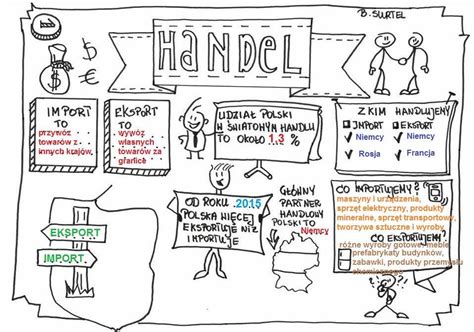 B. SURTEL
HANDEL
$ €
$
IMPORT
TO
przywóz
towarów z
innych krajów,
EKSPORT
TO
wywóz
własnych
towarów za
gfarlice
UDZIAŁ POLSKI
W ŚWIATOWYM HANDLU
TO OKOŁO 1,3 %
Z KIM HANDLUJEMY
IMPORT EKSPORT
Niemcy Niemcy
Rosja Francja
OD ROKU .2015
POLSKA WIĘCEJ
EKSPORTUJE NIŻ
IMPORTUJE
GŁÓWNY
PARTNER
HANDLOWY
POLSKI TO
Niemcy
CO IMPORTUJEMY?
maszyny i urządzenia,
sprzęt elektryczny, produkty
mineralne, sprzęt transportowy,
tworzywa sztuczne i wyroby
CO EKSPORTUJEMY?
różne wyroby gotowe meble,
prefabrykaty budynków,
zabawki, produkty przemysłu
EKSPORT
IMPORT